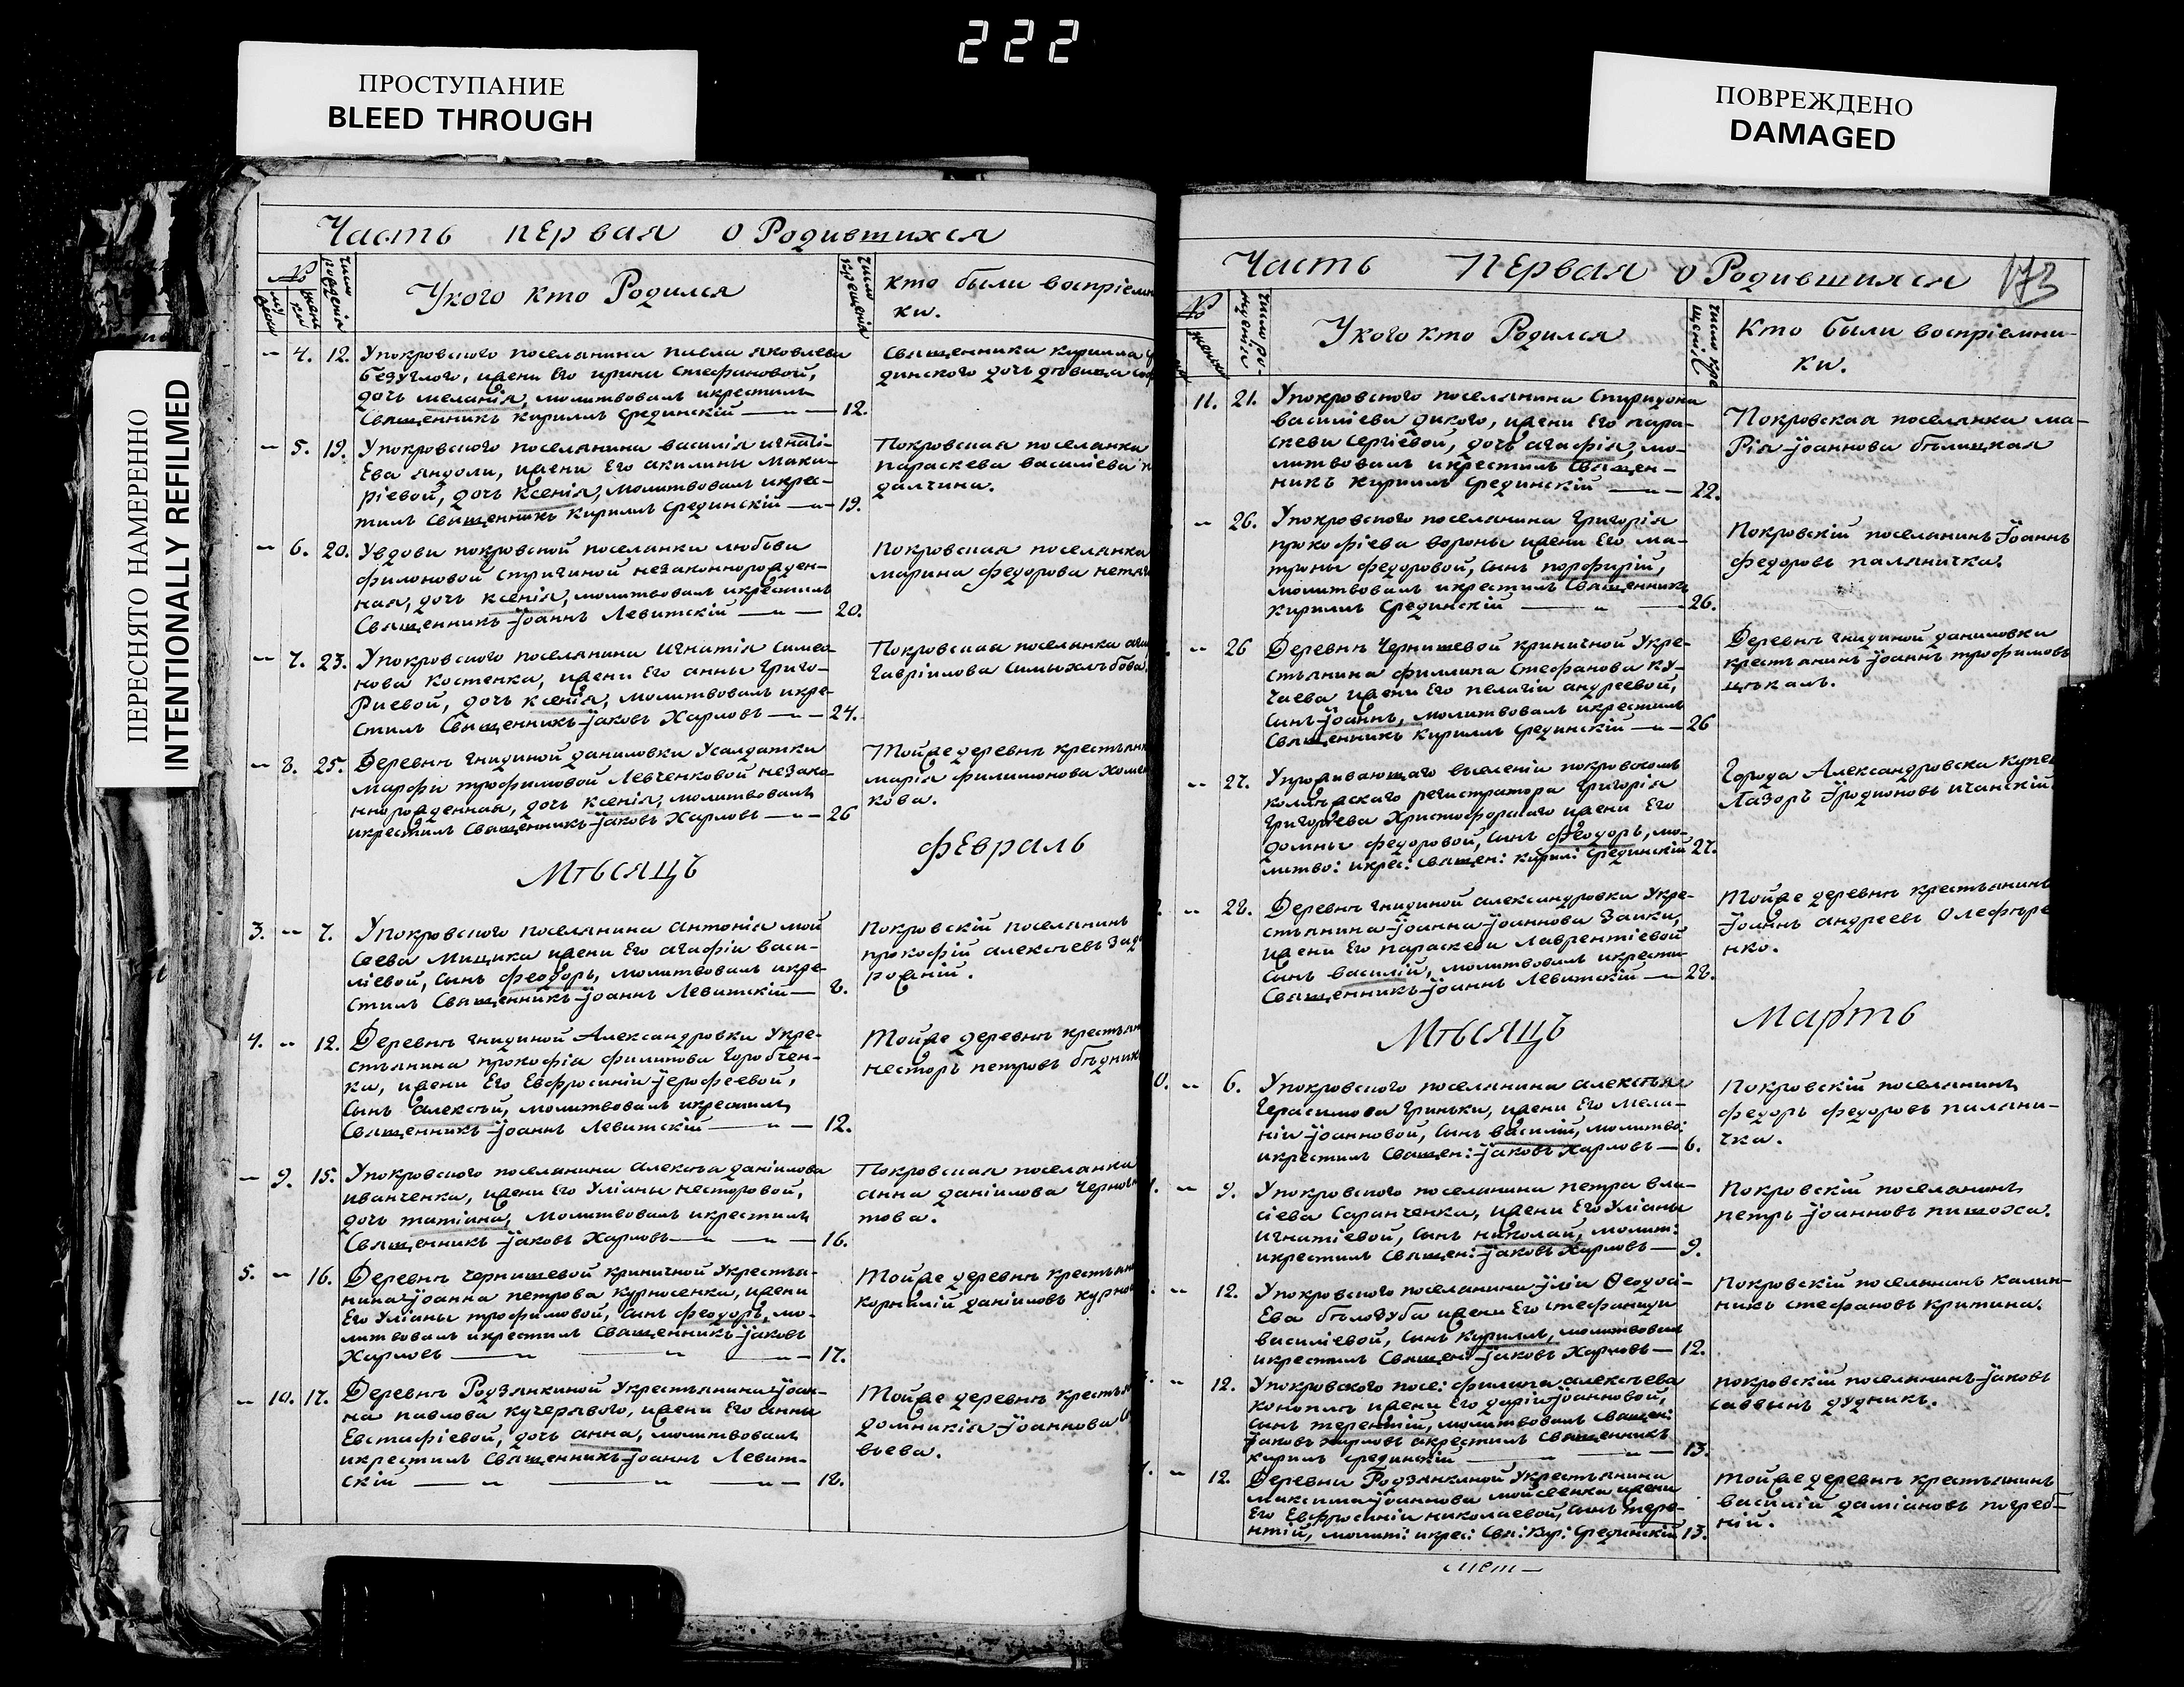 222
ПРОСТУПАНИЕ
BLEED THROUGH
ПОВРЕЖДЕНО
DAMAGED
ПЕРЕСНЯТО НАМЕРЕННО
INTENTIONALLY REFILMED
Часть первая о Родившихся
№
Укого кто Родился
число крещенія
кто были воспріемни
ки.
4. 12. Упокровского поселянина павла яковлева
Безуглого, ижени Его ирини Стефановой,
дочь меланія, молитвовалъ икрестилъ
Священникъ Кириллъ Срединскій 12.
Священника кирилла
динского дочь дѣвица
5. 19. Упокровского поселянина василія игнаті-
Ева яндоли, ижени Его акилины Мака-
ріевой, дочь Ксенія, молитвовалъ икрес-
тилъ Священникъ Кириллъ Срединскій 19.
Покровская поселянка
параскева василіева
далчина.
6. 20. Увдови покровской поселянки любови
филоновой стригиной незаконнорожден-
ная, дочь ксенія, молитвовалъ икрестилъ
Священникъ Іоаннъ Левитскій 20.
Покровская поселянка
марина федорова
7. 23. Упокровского поселянина игнатія Симео
нова Костенка, ижени Его анны григо-
Риевой, дочь ксенія, молитвовалъ икре-
стилъ Священникъ Іаковъ Харловъ 24.
Покровская поселянка
Гавріилова
8. 25. Деревнѣ гнидиной даниловки Усалдатки
Марфи трофимовой Левченковой незако-
ннорожденная, дочь ксенія, молитвовалъ
икрестилъ Священникъ Іаковъ Харловъ 26
Тойже деревнѣ крестьянка
марія филимонова
кова.
Мѣсяцъ
февраль
3. 7. Упокровского поселянина Антонія мой
Сеева Мицика ижени Его агафіи васи-
ліевой, Сынъ феодоръ, молитвовалъ икре-
стилъ Священникъ Іоаннъ Левитскій 8.
Покровскій поселянинъ
прокофій алексѣевъ
рожній.
4. 12. Деревнѣ гнидиной Александровки Укре-
стьянина прокофія филипова Горобчен-
ка, ижени Его Евфросиніи Іерофеевой,
Сынъ алексѣй, молитвовалъ икрестилъ
Священникъ Іоаннъ Левитскій 12.
Тойже деревнѣ
несторъ петровъ
9. 15. Упокровского поселянина Алексѣя даніилова
иванченка, ижени Его Уліаны несторовой,
дочь татіана, молитвовалъ икрестилъ
Священникъ Іаковъ Харловъ 16.
Покровская поселянка
анна даніилова
това.
5. 16. Деревнѣ чернишевой криничной Укрестья-
нина Іоанна петрова курносенка, ижени
Его Уліаны трофимовой, Сынъ феодоръ, мо-
литвовалъ икрестилъ Священникъ Іаковъ
Харловъ 17.
Тойже деревнѣ
корнилій даніиловъ
10. 17. Деревнѣ Родзянкиной Укрестьянина Іоан-
на павлова кучерявого, ижени Его анны
Евстафіевой, дочь анна, молитвовалъ
икрестилъ Священникъ Іоаннъ Левит-
скій 18.
Тойже деревнѣ
домникія Іоаннова
вьева.
Часть Первая о Родившихся
173
№
Укого кто Родился
Кто были воспріемни-
ки.
11. 21. Упокровского поселянина Спиридона
василіева дикого, ижени Его пара-
скеви Сергіевой, дочь агафія, мо-
литвовалъ икрестилъ Священ-
никъ Кириллъ Срединскій 22.
Покровская поселянка ма-
Рія Іоаннова бѣлицкая
26. Упокровского поселянина Григорія
прокофіева вороны ижени Его ма-
троны федоровой, Сынъ порфирій,
молитвовалъ икрестилъ Священникъ
Кириллъ Срединскій 26.
Покровскій поселянинъ Іоаннъ
федоровъ паляничка.
26 Деревнѣ Чернишевой криничной Укре-
стьянина филиппа Стефанова Ку-
чаева ижени Его пелагіи андреевой,
Сынъ Іоаннъ, молитвовалъ икрестилъ
Священникъ Кириллъ Срединскій 26
Деревнѣ гнидиной даниловки
крестьянинъ Іоаннъ трофимовъ
27. Упроживающаго
коллѣжскаго регистратора Григорія
Григорьева Христофорского ижени Его
домны федоровой, Сынъ феодоръ, мо-
литво: икрес: Священ: Кирил: Срединскій 27.
Города Александровска
Лазорь
28. Деревнѣ гнидиной александровки Укре-
стьянина Іоанна Іоаннова Заики,
ижени Его параскеви Лаврентіевой
Сынъ василій, молитвовалъ икрести
Священникъ Іоаннъ Левитскій 28.
Тойже деревнѣ крестьянинъ
Іоаннъ андреевъ Олефѣре
нко.
Мѣсяцъ
Мартъ
6. Упокровского поселянина алексѣя
Герасимова Гриньки, ижени Его мела-
ніи Іоанновой, Сынъ василій, молитво:
икрестилъ Священ: Іаковъ Харловъ 6.
Покровскій поселянинъ
федоръ федоровъ паляни-
чка.
9. Упокровского поселянина петра вла-
сіева Саранченка, ижени Его Уліаны
игнатіевой, Сынъ николай, молит:
икрестилъ Священ: Іаковъ Харловъ 9.
Покровскій поселянинъ
петръ Іоанновъ
12. Упокровского поселянина Іліи Ѳеодосі-
Ева бѣлозуба ижени Его стефаниди
василіевой, Сынъ Кириллъ, молитвовалъ
икрестилъ Священ: Іаковъ Харловъ 12.
Покровскій поселянинъ калин-
никъ стефановъ критина.
12. Упокровского посел: филипа алексѣева
Коноплѣ ижени Его даріи Іоанновой,
Сынъ терентій, молитвовалъ Священ:
Іаковъ Харловъ акрестилъ Священникъ
Кирилъ Срединскій 13.
покровскій поселянинъ Іаковъ
саввынъ дудникъ.
12. Деревни Родзянкиной Укрестьянина
максима Іоаннова мойсеенка ижени
Его Евфросиніи николаевой, Сынъ тере-
нтій, молит: икрес: Свя: Кир: Срединскій 13.
Тойже деревнѣ крестьянинъ
василій даміановъ погреб-
ній.